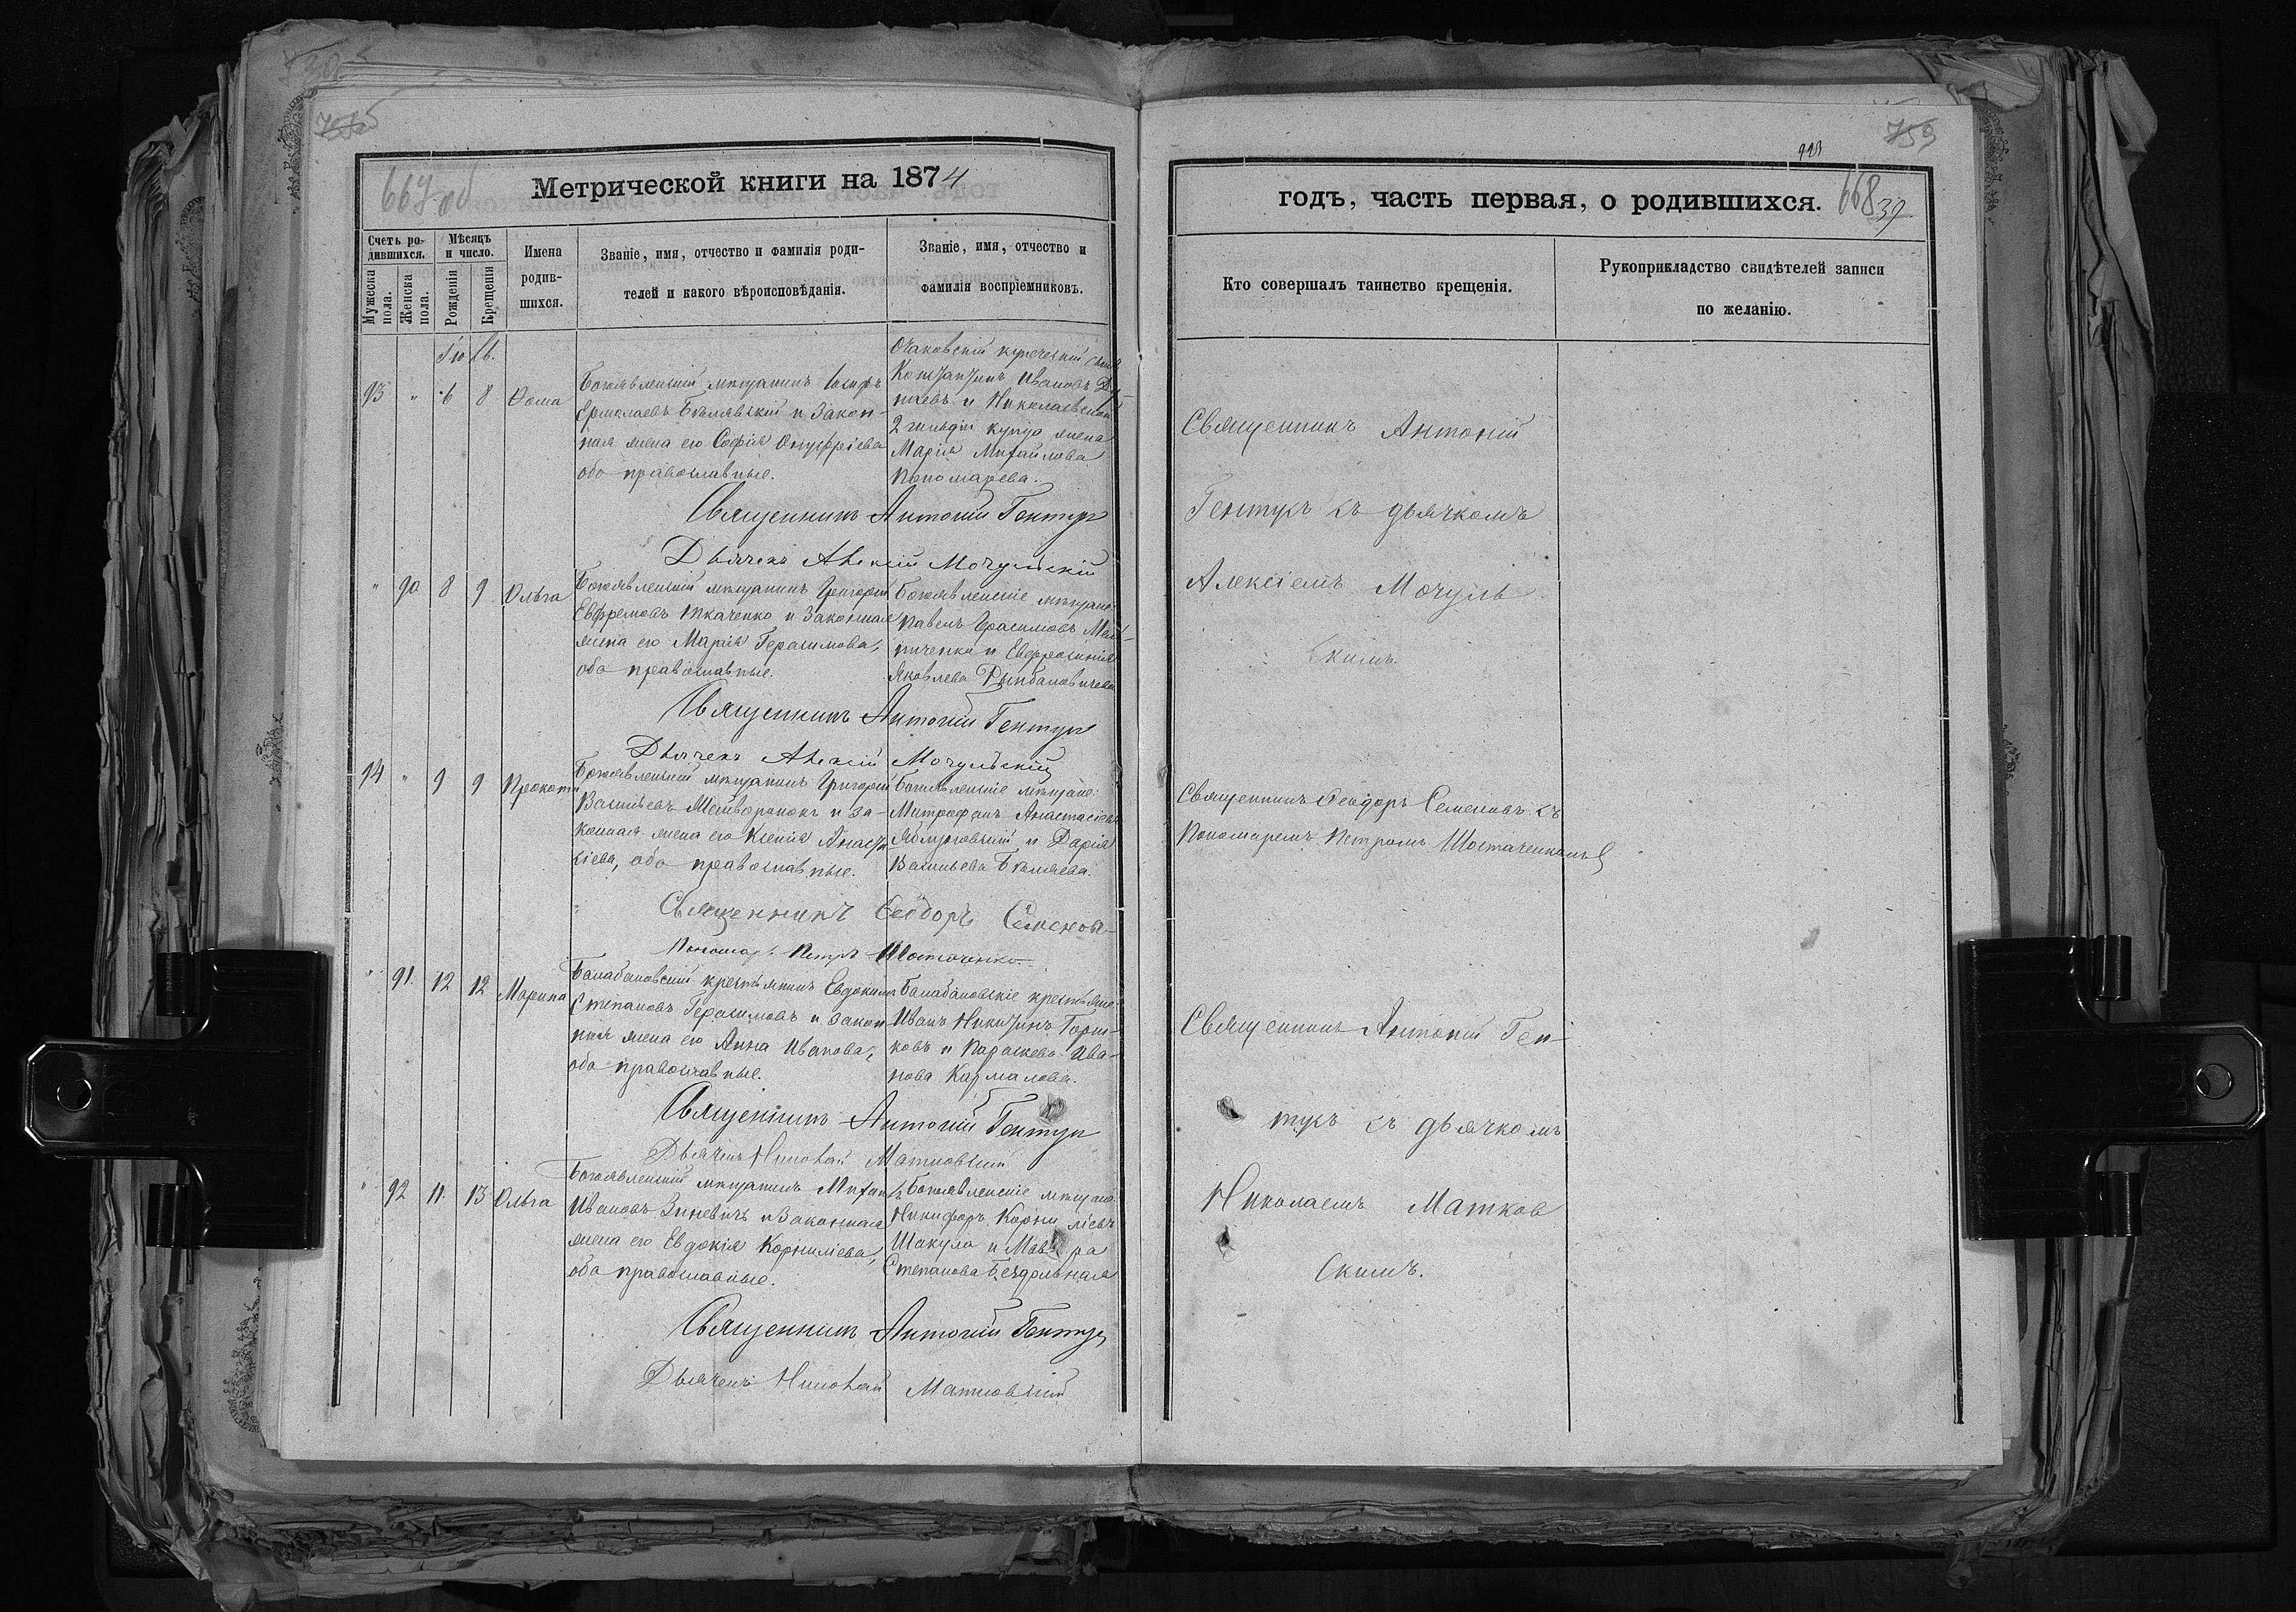 759
668
39
Метрической книги на 1874
годъ, часть первая, о родившихся.
Счетъ ро-
дившихся.
Мужеска
пола.
Женска
пола.
Мѣсяцъ
и число.
Рожденія
Крещенія
Имена
родив-
шихся.
Званіе, имя, отчество и фамилія роди-
телей и какого вѣроисповѣданія.
Званіе, имя, отчество и
фамилія воспріемниковъ.
Кто совершалъ таинство крещенія.
Рукоприкладство свидѣтелей записи
по желанію.
93 " 6 8 Ѳома
Богоявленскій мѣщанинъ Іосифъ
Ермолаевъ Бѣлявскій и закон-
ная жена его Софія Онуфріева
оба православные.
Очаковскій купеческій сынъ
Константинъ Ивановъ
и Николаевской
2 гильдіи купца жена
Марія Михайлова
Пономарева.
Священникъ Антоній
Гентукъ съ дьячкомъ
Алексіемъ Мочуль
скимъ.
Священникъ Антоній Гентук
Дьячекъ Алексій Мочульскій
" 90 8 9 Ольга
Богоявленскій мѣщанинъ Григорій
Евфремовъ Ткаченко и законная
жена его Марія Герасимова,
оба православные.
Богоявленскіе мѣщане:
Павелъ Герасимовъ
и Евфросинія
Яковлева
Священникъ Антоній Гентук
Дьячекъ Алексій Мочульскій
94 " 9 9 Прокопій
Богоявленскій мѣщанинъ Григорій
Васильевъ и за-
конная жена его Ксенія Анаста
сіева, оба православные.
Богоявленскіе мѣщане:
Митрофанъ Анастасіевъ
и Дарія
Васильева Бѣляева.
Священникъ Ѳеодоръ Семеновъ съ
Пономаремъ Петромъ Шостаченкомъ
Священникъ Ѳеодоръ Семеновъ
Пономарь Петръ Шостаченко
" 91 12 12 Марина
Балабановскій крестьянинъ Евдокимъ
Степановъ Герасимовъ и закон
ная жена его Анна Иванова,
оба православные.
Балабановскіе крестьяне:
Иванъ Никитинъ Горш-
ковъ и Параскева Ива-
нова Кармалова.
Священникъ Антоній Ген-
тукъ съ дьячкомъ
Николаемъ Матков
скимъ.
Священникъ Антоній Гентук
Дьячекъ Николай Матковскій
" 92 11 13 Ольга
Богоявленскій мѣщанинъ Михаилъ
Ивановъ Зиневичъ и законная
жена его Евдокія Корниліева,
оба православные.
Богоявленскіе мѣщане:
Никифоръ Корниліевъ
Шакула и Мавра
Степанова Бездольная
Священникъ Антоній Гентук
Дьячекъ Николай Матковскій